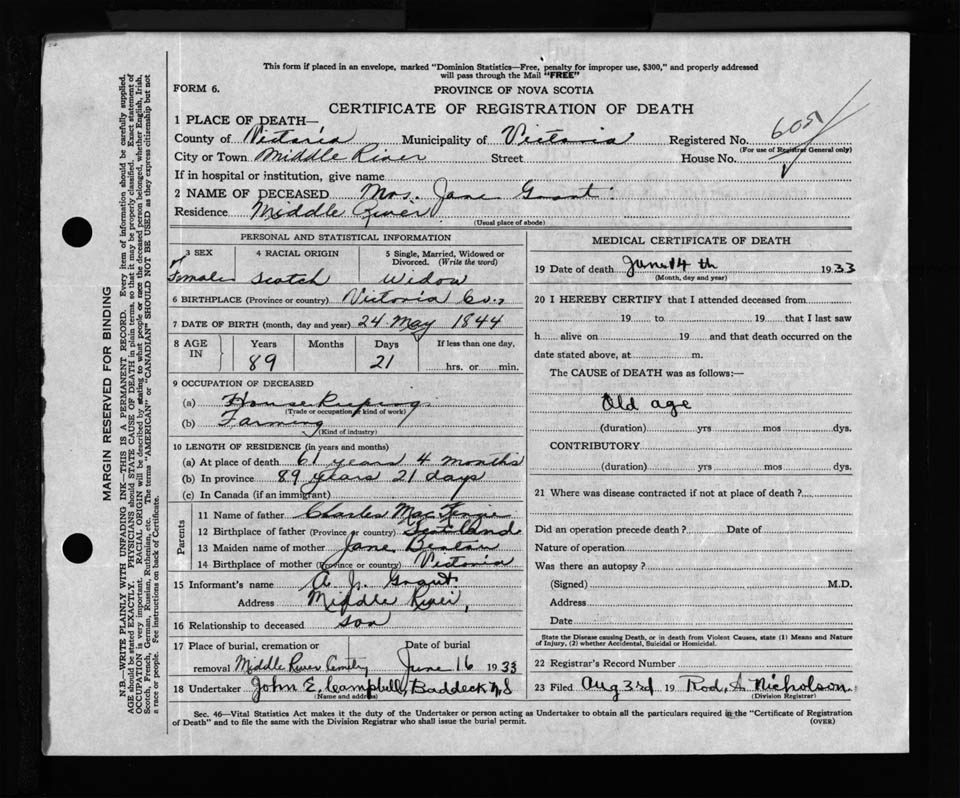 This form if placed in an envelope, marked "Dominion Statistics—Free, penalty for improper use, $300," and properly addressed
will pass through the Mail "FREE"
FORM 6.
PROVINCE OF NOVA SCOTIA
CERTIFICATE OF REGISTRATION OF DEATH
1 PLACE OF DEATH—
County of Victoria Municipality of Victoria Registered No.
(For use of Registrar General only)
City or Town Middle River Street House No.
If in hospital or institution, give name
2 NAME OF DECEASED Mrs. Jane Grant
Residence Middle River
(Usual place of abode)
PERSONAL AND STATISTICAL INFORMATION
3 SEX 4 RACIAL ORIGIN 5 Single, Married, Widowed or Divorced. (Write the word)
Female Scotch Widow
6 BIRTHPLACE (Province or country) Victoria Co.,
7 DATE OF BIRTH (month, day and year) 24 May 1844
8 AGE IN Years Months Days If less than one day,
89 21 hrs. or min.
9 OCCUPATION OF DECEASED
(a) House Keeping
(Trade or occupation or kind of work)
(b) Farming
(Kind of industry)
10 LENGTH OF RESIDENCE (in years and months)
(a) At place of death 61 years 4 months
(b) In province 89 years 21 days
(c) In Canada (if an immigrant)
Parents
11 Name of father Charles
12 Birthplace of father (Province or country) Scotland
13 Maiden name of mother Jane
14 Birthplace of mother (Province or country) Victoria
15 Informant's name A. Grant
Address Middle River,
16 Relationship to deceased Son
17 Place of burial, cremation or Date of burial
removal Middle River Cemetery June 16 1933
18 Undertaker John E. Campbell, Baddeck N S
(Name and address)
MEDICAL CERTIFICATE OF DEATH
19 Date of death June 14 th 1933
(Month, day and year)
20 I HEREBY CERTIFY that I attended deceased from
19 to 19 that I last saw
h alive on 19 and that death occurred on the
date stated above, at m.
The CAUSE of DEATH was as follows:—
Old age
(duration) yrs mos dys.
CONTRIBUTORY
(duration) yrs mos dys.
21 Where was disease contracted if not at place of death ?
Did an operation precede death ? Date of
Nature of operation
Was there an autopsy ?
(Signed) M.D.
Address
Date
State the Disease causing Death, or in death from Violent Causes, state (1) Means and Nature
of Injury, (2) whether Accidental, Suicidal or Homicidal.
22 Registrar's Record Number
23 Filed Aug 3rd 19 Rod. S. Nicholson
(Division Registrar)
Sec. 46—Vital Statistics Act makes it the duty of the Undertaker or person acting as Undertaker to obtain all the particulars required in the "Certificate of Registration
of Death" and to file the same with the Division Registrar who shall issue the burial permit. (OVER)
MARGIN RESERVED FOR BINDING
N.B.—WRITE PLAINLY WITH UNFADING INK—THIS IS A PERMANENT RECORD. Every item of information should be carefully supplied.
AGE should be stated EXACTLY. PHYSICIANS should STATE CAUSE OF DEATH in plain terms, so that it may be properly classified. Exact statement of
OCCUPATION is very important. RACIAL ORIGIN will be described by stating to what people or race the deceased person belonged, whether English, Irish,
Scotch, French, German, Russian, Ruthenian, etc. The terms "AMERICAN" or "CANADIAN" SHOULD NOT BE USED as they express citizenship but not
a race or people. See instructions on back of Certificate.